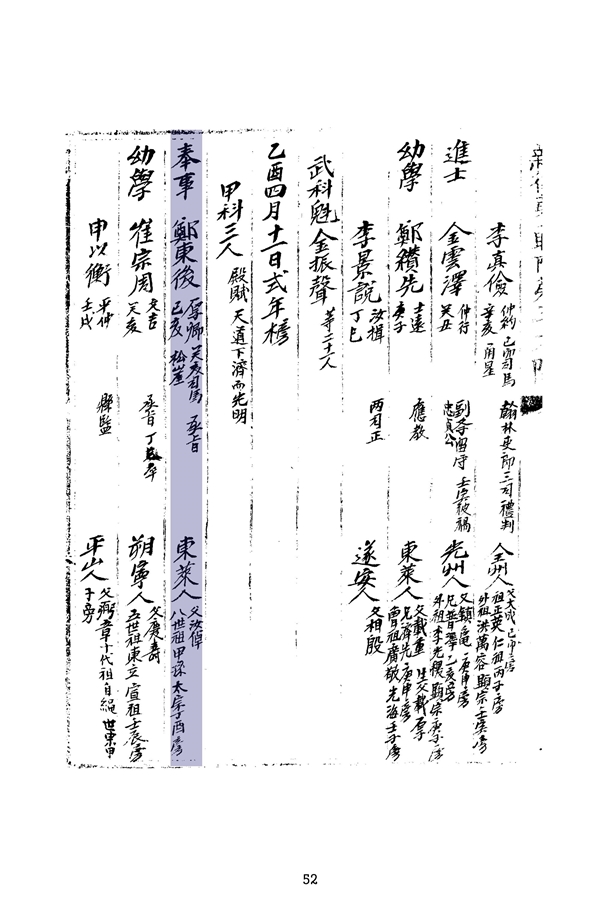 李真儉 仲約 己卯司馬 辛亥 角星 翰林吏郎三司禮判 全州人 父大成 祖正英 仁祖丙子房 外祖洪萬容 顯宗壬寅房
進士 金雲澤 仲行 癸丑 留守 壬寅被禍 忠貞公 光州人 父鎭龜 庚申房 兄普澤 乙亥房 外祖李光稷 顯宗庚子房
幼學 鄭纘先 士遠 庚子 應教 東萊人 父載重 生父載厚 兄齊先 庚申房 曾祖廣敬 光海壬子房
李景說 汝楫 丁巳 兩司正 遂安人 父相殷
武科魁 金振聲 等二十一人
乙酉四月十一日式年榜
甲科三人 殿賦 天道下濟而光明
奉事 鄭東後 厚卿 癸亥司馬 己亥 松崖 承旨 東萊人 父汝倬 八世祖甲孫 太宗丁酉房
幼學 崔宗周 文吉 癸亥 承旨 朔寧人 父慶壽 五世祖東立 宣祖壬辰房
申以衡 平仲 壬戌 縣監 平山人 父弼章 十代祖自繩 世宗甲子房
52